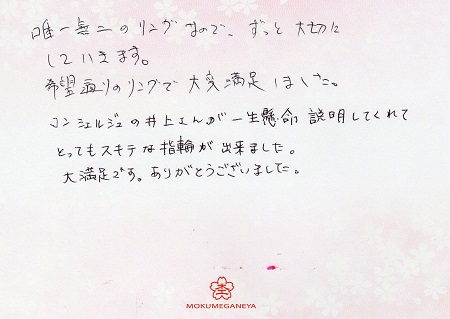 唯一無二のリングなので、ずっと大切に
していきます。
希望通りのリングで大変満足しました。
コンシェルジュの井上さんが一生懸命説明してくれて
とってもステキな指輪が出来ました。
大満足です。ありがとうございました。
MOKUMEGANEYA